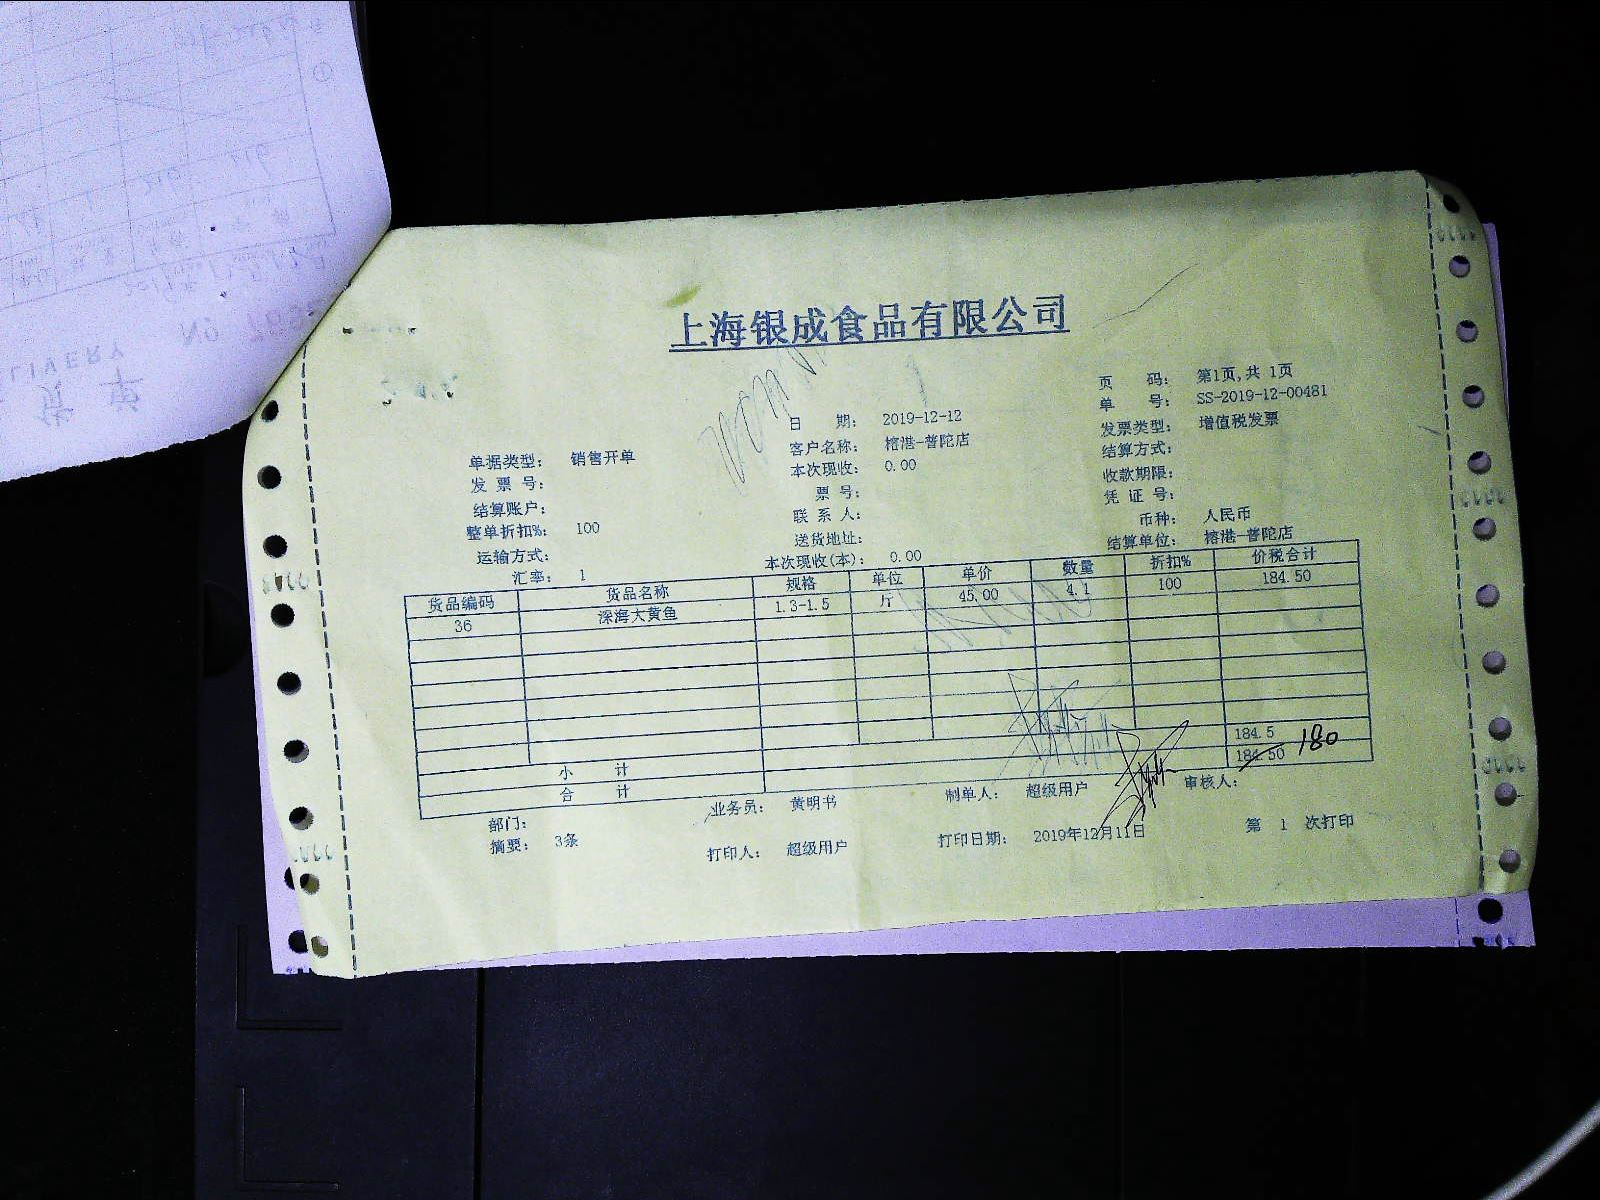 上海银成食品有限公司
页 码: 第1页,共 1页
单据类型: 销售开单 日 期: 2019-12-12 单 号: SS-2019-12-00481
发 票 号: 客户名称: 榕港-普陀店 发票类型: 增值税发票
结算账户: 本次现收: 0.00 结算方式:
整单折扣%: 100 票 号: 收款期限:
运输方式: 联 系 人: 凭 证 号:
汇率: 1 送货地址: 币种: 人民币
本次现收(本): 0.00 结算单位: 榕港-普陀店
货品编码 货品名称 规格 单位 单价 数量 折扣% 价税合计
36 深海大黄鱼 1.3-1.5 斤 45.00 4.1 100 184.50
小 计 184.5
合 计 184.50 180
部门: 业务员: 黄明书 制单人: 超级用户 审核人:
摘要: 3条 打印人: 超级用户 打印日期: 2019年12月11日 第 1 次打印